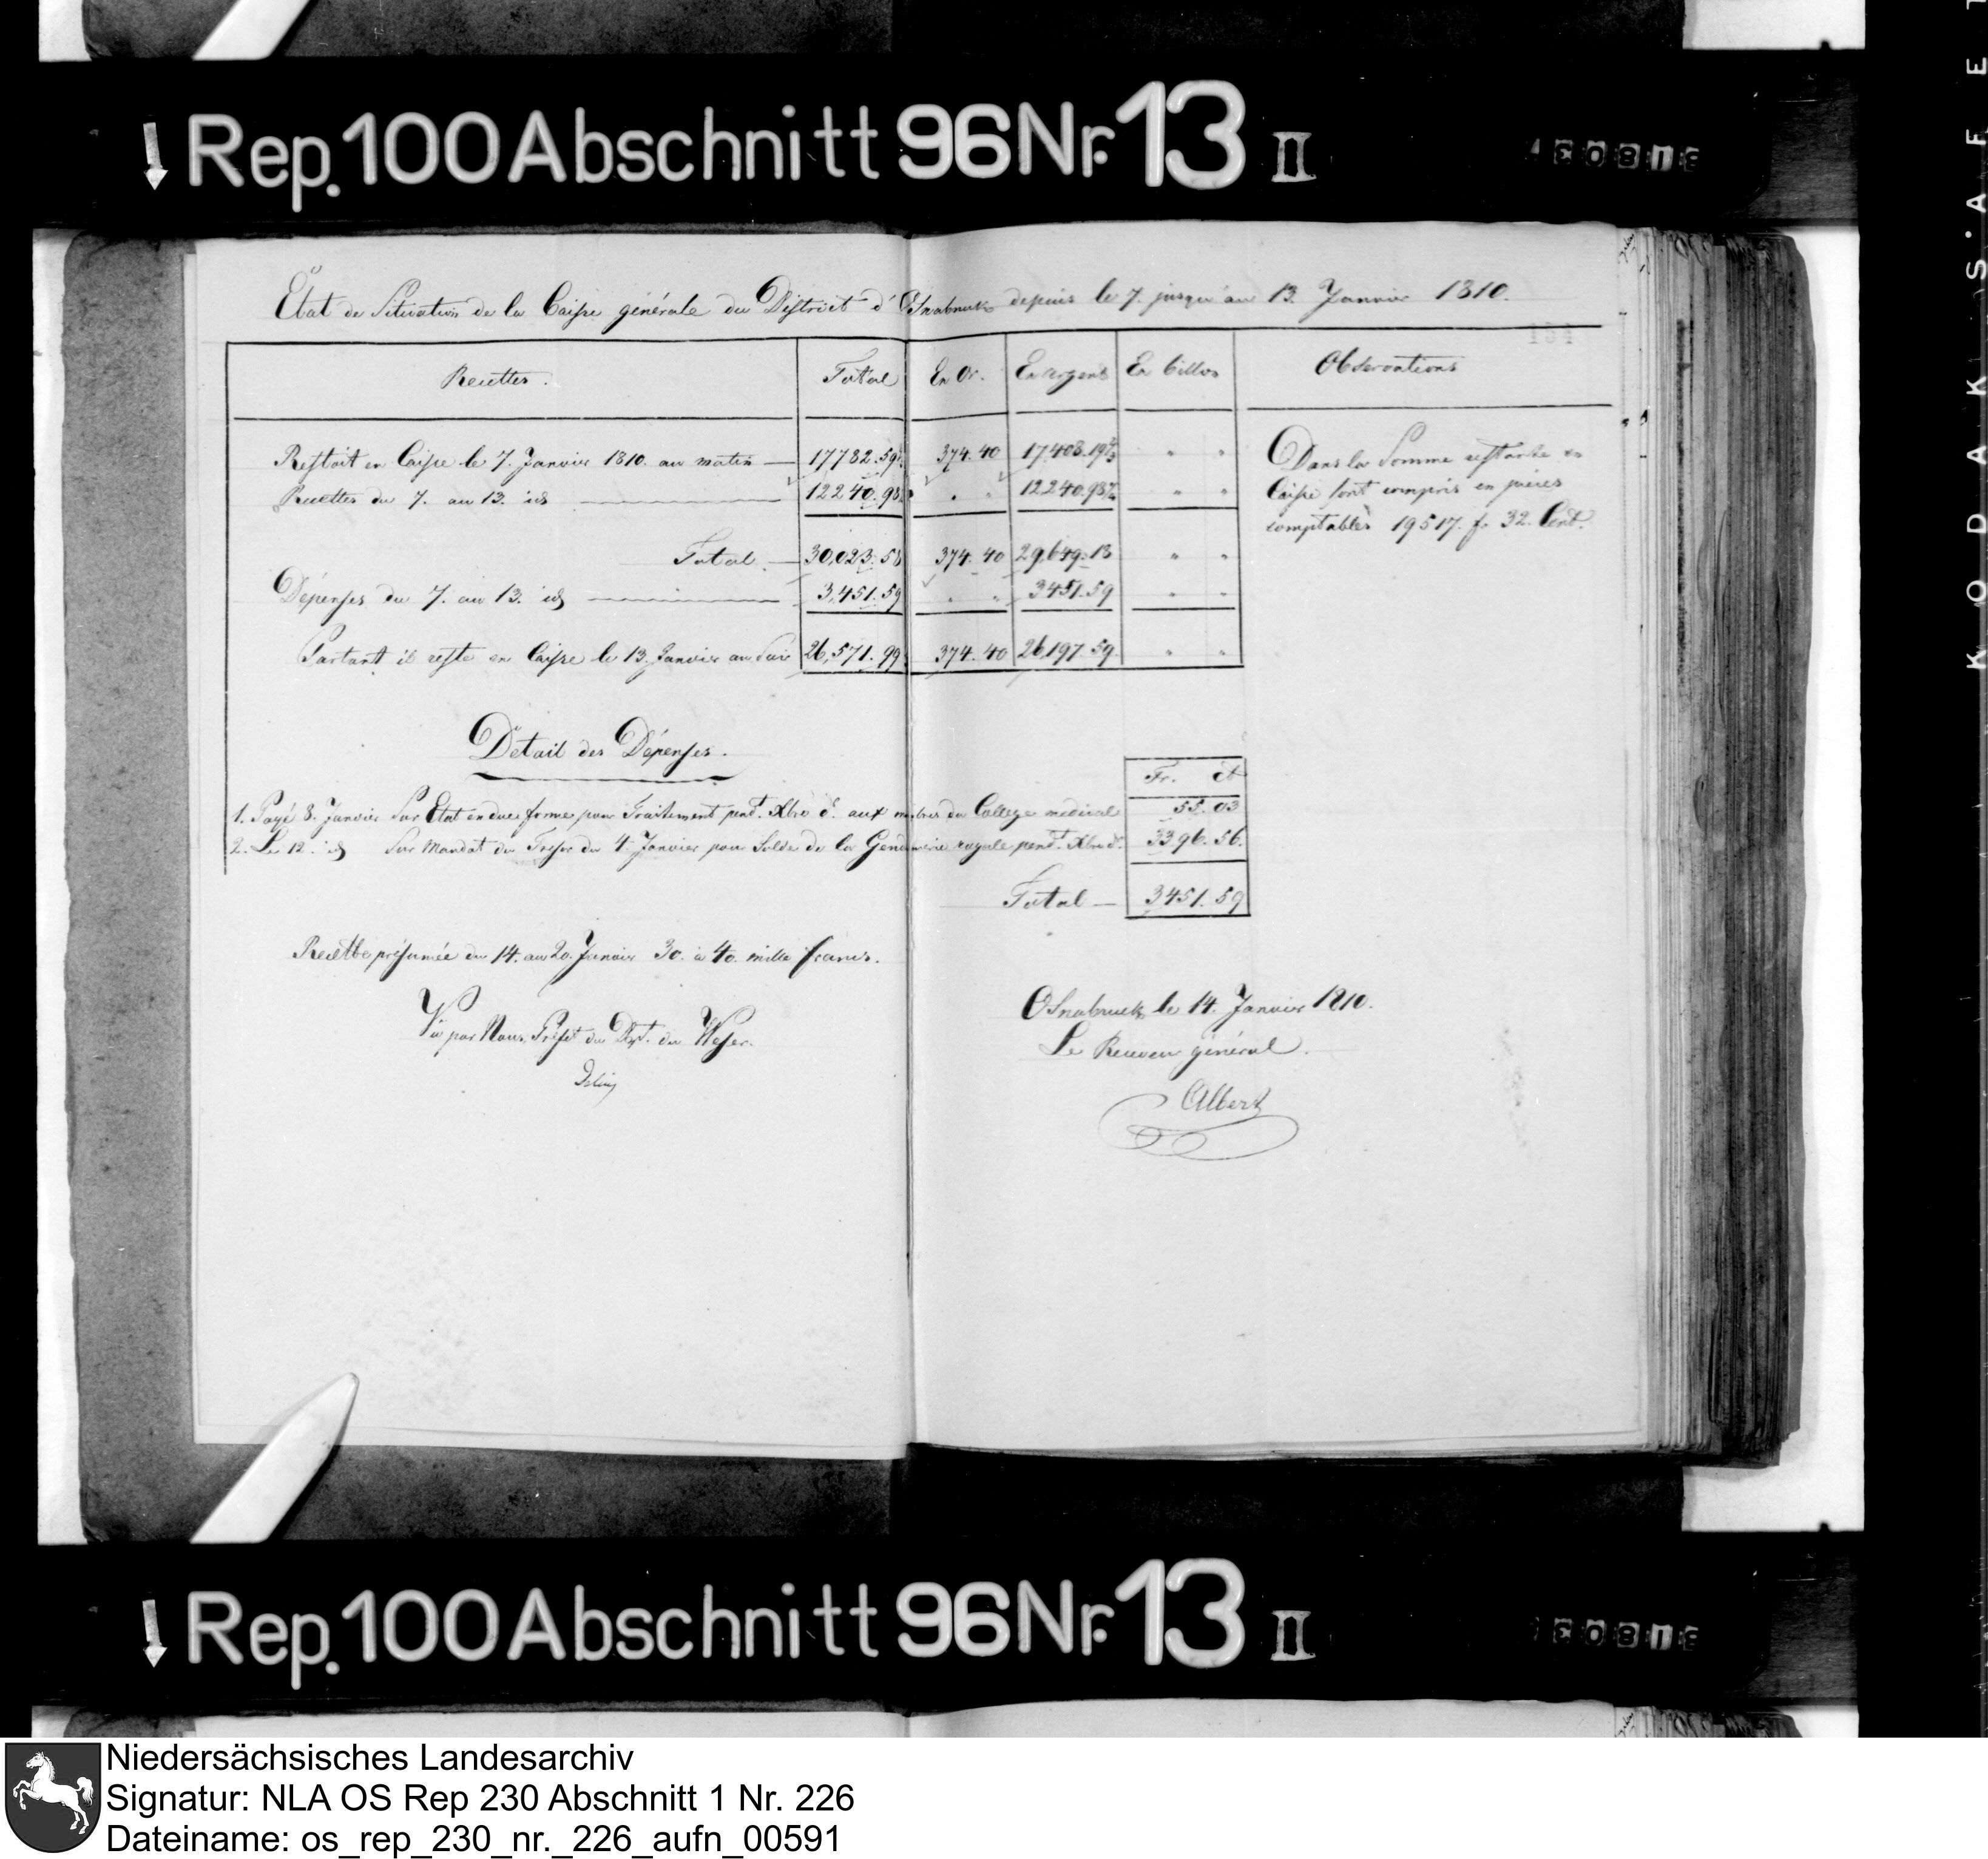 Rep. 100 Abschnitt 96 Nr. 13 II
Etat de Situation de la Caisse générale du District d'Osnabruck depuis le 7. jusqu'au 13. Janvier 1810.
Recettes. Total En Or. En argent En billon Observations
Restoit en Caisse le 7. Janvier 1810. au matin — 17782. 59 374. 40 17408. 19 " "
Recettes du 7. au 13. id — 12240. 98 " " 12240. 98 " "
Total — 30,023. 58 374. 40 29,649. 18 " "
Dépenses du 7. au 13. id — 3,451. 59 " " 3451. 59 " "
Partant il reste en Caisse le 13. Janvier au Soir 26,571. 99 374. 40 26,197. 59. " "
Dans la Somme restante en
Caisse sont compris en pièces
comptables 19517. fr 32. Cent.
Détail des Dépenses.
Fr. Ct
1. Payé 8. Janvier Sur Etat en due forme pour Traitement pend.t Xbre d.r aux membres du College médical 55. 03
2. Le 12. id Sur Mandat du Tresor du 4. Janvier pour Solde de la Gendarmerie royale pend.t Xbre d.r 3396. 56.
Total — 3451. 59
Recette présumée du 14. au 20. Janvier 30. à 40. mille francs.
Vu par Nous Préfet du Dépt. du Weser.
Osnabruck le 14. Janvier 1810.
Le Receveur général.
Albert
Rep. 100 Abschnitt 96 Nr. 13 II
KODAK S'AFET
Niedersächsisches Landesarchiv
Signatur: NLA OS Rep 230 Abschnitt 1 Nr. 226
Dateiname: os_rep_230_nr._226_aufn_00591